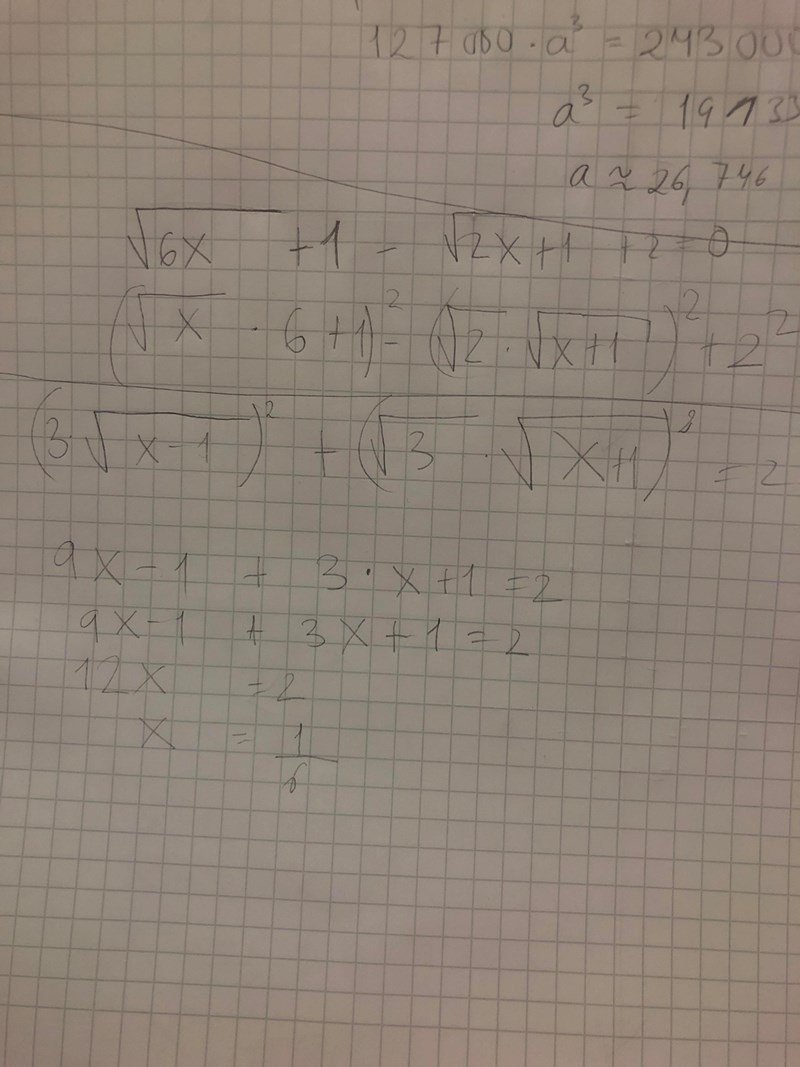 127 000 · a³ = 243 000
a³ = 19133
a ≈ 26,746
√6x + 1 - √2x+1 + 2 = 0
(√x · 6 + 1)² - (√2 · √x+1)² + 2²
(3√x-1)² + (√3 · √x+1)² = 2
9x - 1 + 3 · x + 1 = 2
9x - 1 + 3x + 1 = 2
12x = 2
x = 1/6